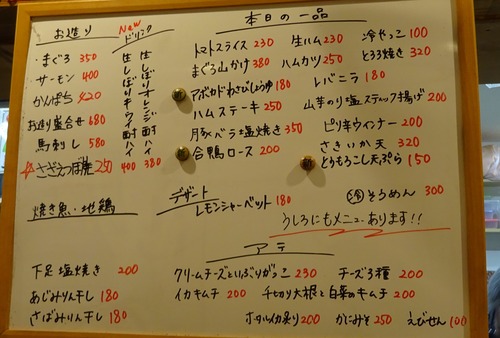 お造り
・まぐろ 350
サーモン 400
かんぱち 420
お造り盛合せ 680
馬刺し 580
さざえつぼ焼 250
New
ドリンク
生しぼりキウイ酎ハイ 400
生しぼりオレンジ酎ハイ 380
本日の一品
トマトスライス 230
まぐろ山かけ 380
アボカドわさびじょうゆ 180
ハムステーキ 250
豚バラ塩焼き 350
合鴨ロース 200
生ハム 230
ハムカツ 250
レバニラ 180
山芋のり塩スティック揚げ 200
ピリ辛ウィンナー 200
さきいか天 320
とうもろこし天ぷら 150
冷やっこ 100
とろろ焼き 320
冷 そうめん 300
うしろにもメニューあります!!
デザート
レモンシャーベット 180
焼き魚・地鶏
下足塩焼き 200
あじみりん干し 180
さばみりん干し 180
アテ
クリームチーズといぶりがっこ 230
チーズ3種 200
イカキムチ 200
千切り大根と白菜のキムチ 200
ホタルイカ炙り 200
かにみそ 250
えびせん 100